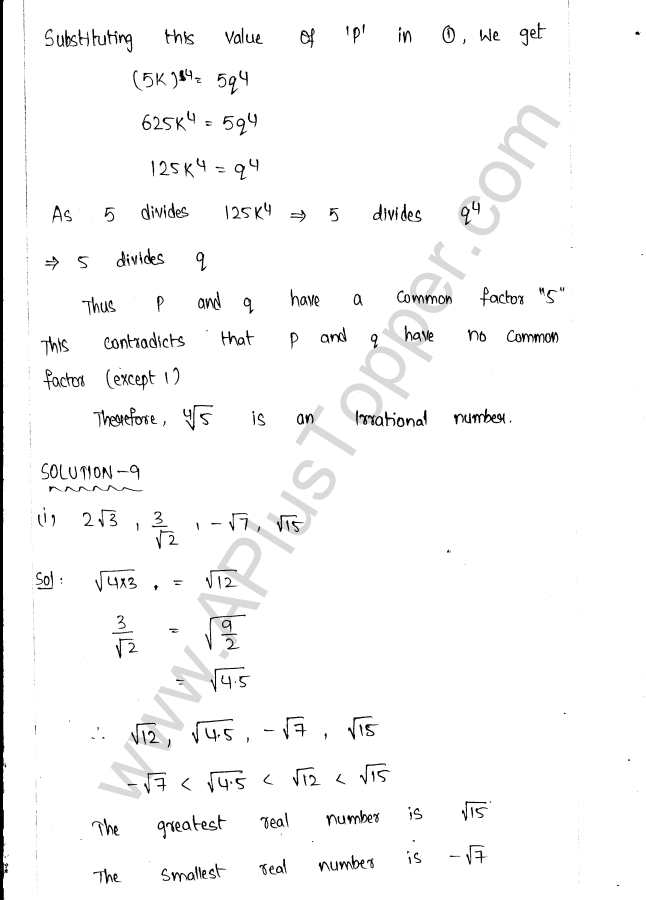 Substituting this value of 'p' in ①, we get
(5K)⁴ = 5q⁴
625K⁴ = 5q⁴
125K⁴ = q⁴
As 5 divides 125K⁴ ⇒ 5 divides q⁴
⇒ 5 divides q
Thus p and q have a common factor "5"
This contradicts that p and q have no common
factor (except 1)
Therefore, ∜5 is an Irrational number.
SOLUTION-9
(i) 2√3, 3/√2, -√7, √15
Sol: √(4×3) = √12
3/√2 = √(9/2)
= √4.5
∴ √12, √4.5, -√7, √15
-√7 < √4.5 < √12 < √15
The greatest real number is √15
The smallest real number is -√7
www.APlusTopper.com